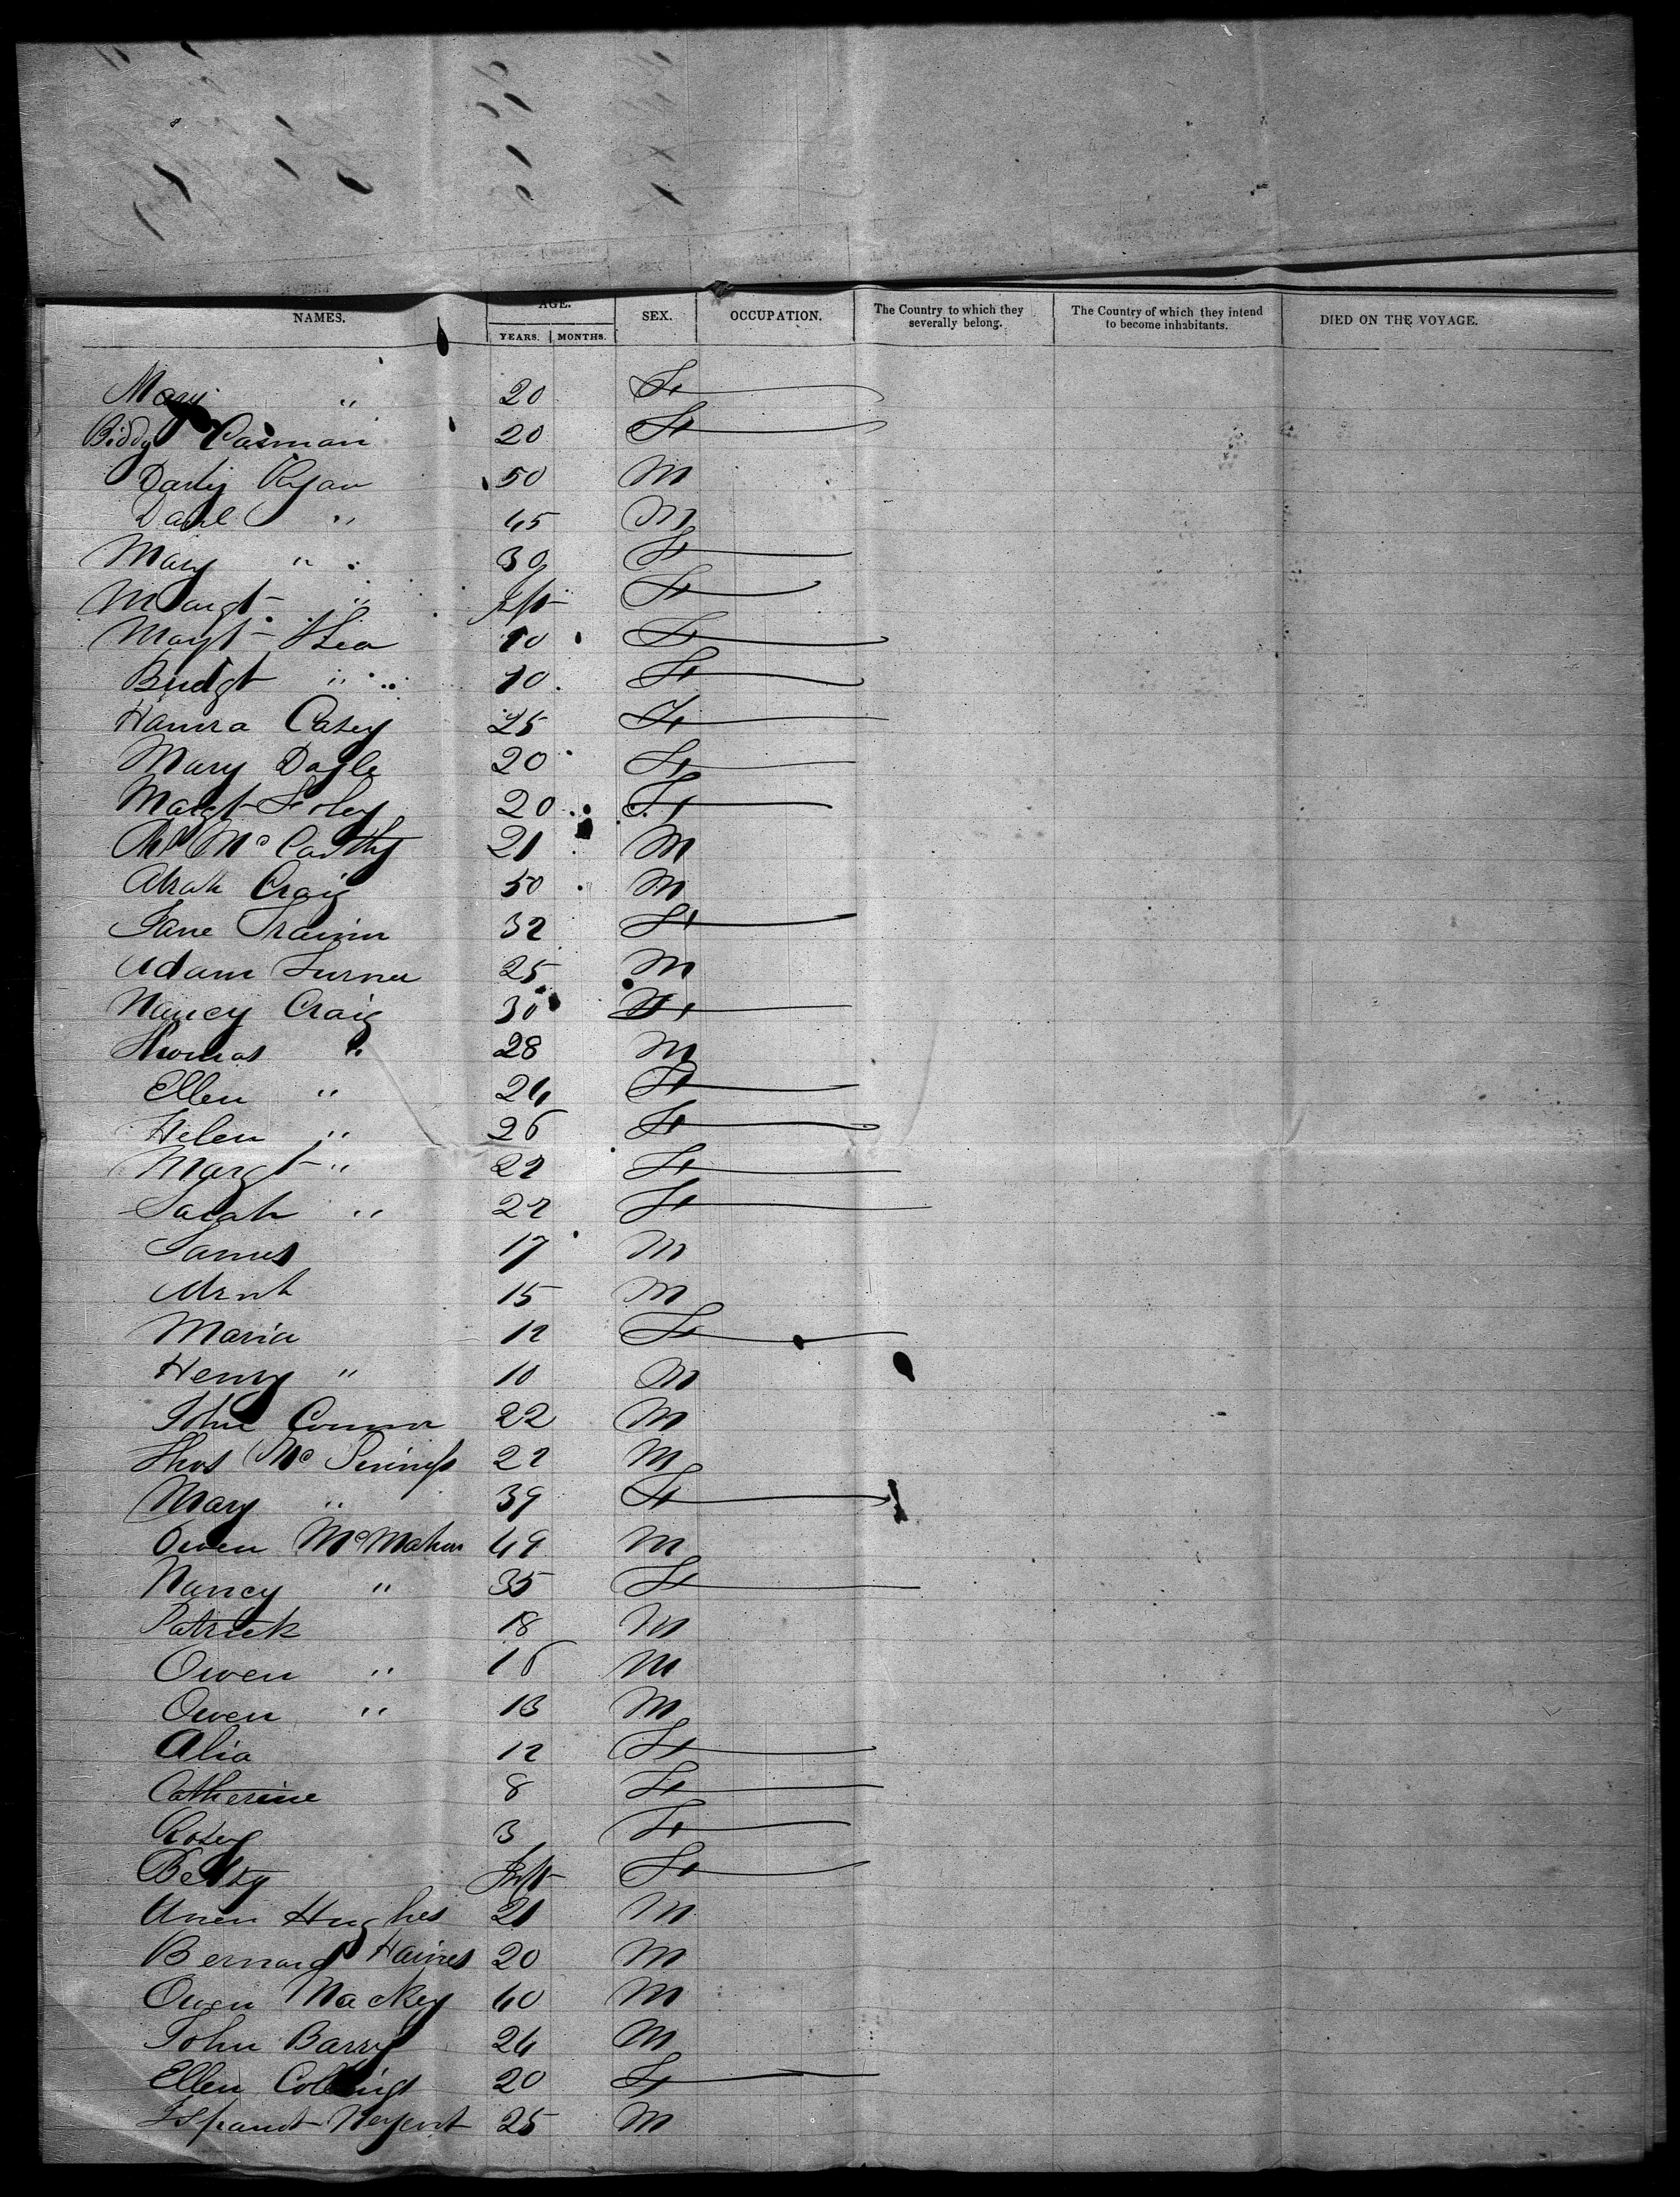 NAMES. AGE. YEARS. MONTHS. SEX. OCCUPATION. The Country to which they severally belong. The Country of which they intend to become inhabitants. DIED ON THE VOYAGE.
Mary " 20 F
Biddy 20 F
Ryan 50 M
Danl " 45 M
Mary " 30 F
Margt " Inft F
Margt Shea 10 F
Bridgt " 10 F
Hanora Casey 25 F
Mary Doyle 20 F
Margt Foley 20 F
McCarthy 21 M
Craig 50 M
Jane Trainor 32 F
Adam Turner 25 M
Nancy Craig 30 F
Thomas " 28 M
Ellen " 24 F
Helen " 26 F
Margt " 22 F
Sarah " 22 F
James 17 M
15 M
Maria 12 F
Henry " 10 M
John Connor 22 M
Thos Mc 22 M
Mary " 39 F
Owen McMahon 49 M
Nancy " 35 F
Patrick 18 M
Owen " 16 M
Owen " 13 M
Alia 12 F
Catherine 8 F
Rosey 3 F
Betsy Inft F
Hughes 21 M
Bernard Haines 20 M
Owen Mackey 40 M
John Barry 24 M
Ellen Collings 20 F
25 M